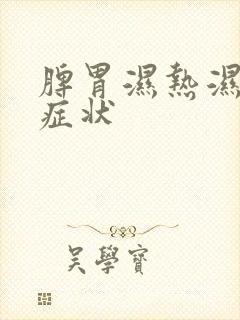 脾胃濕熱濕
症状
吳學寶